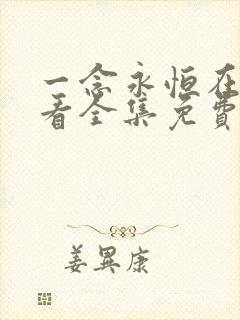 一念永恒在
看全集免费
姜异康